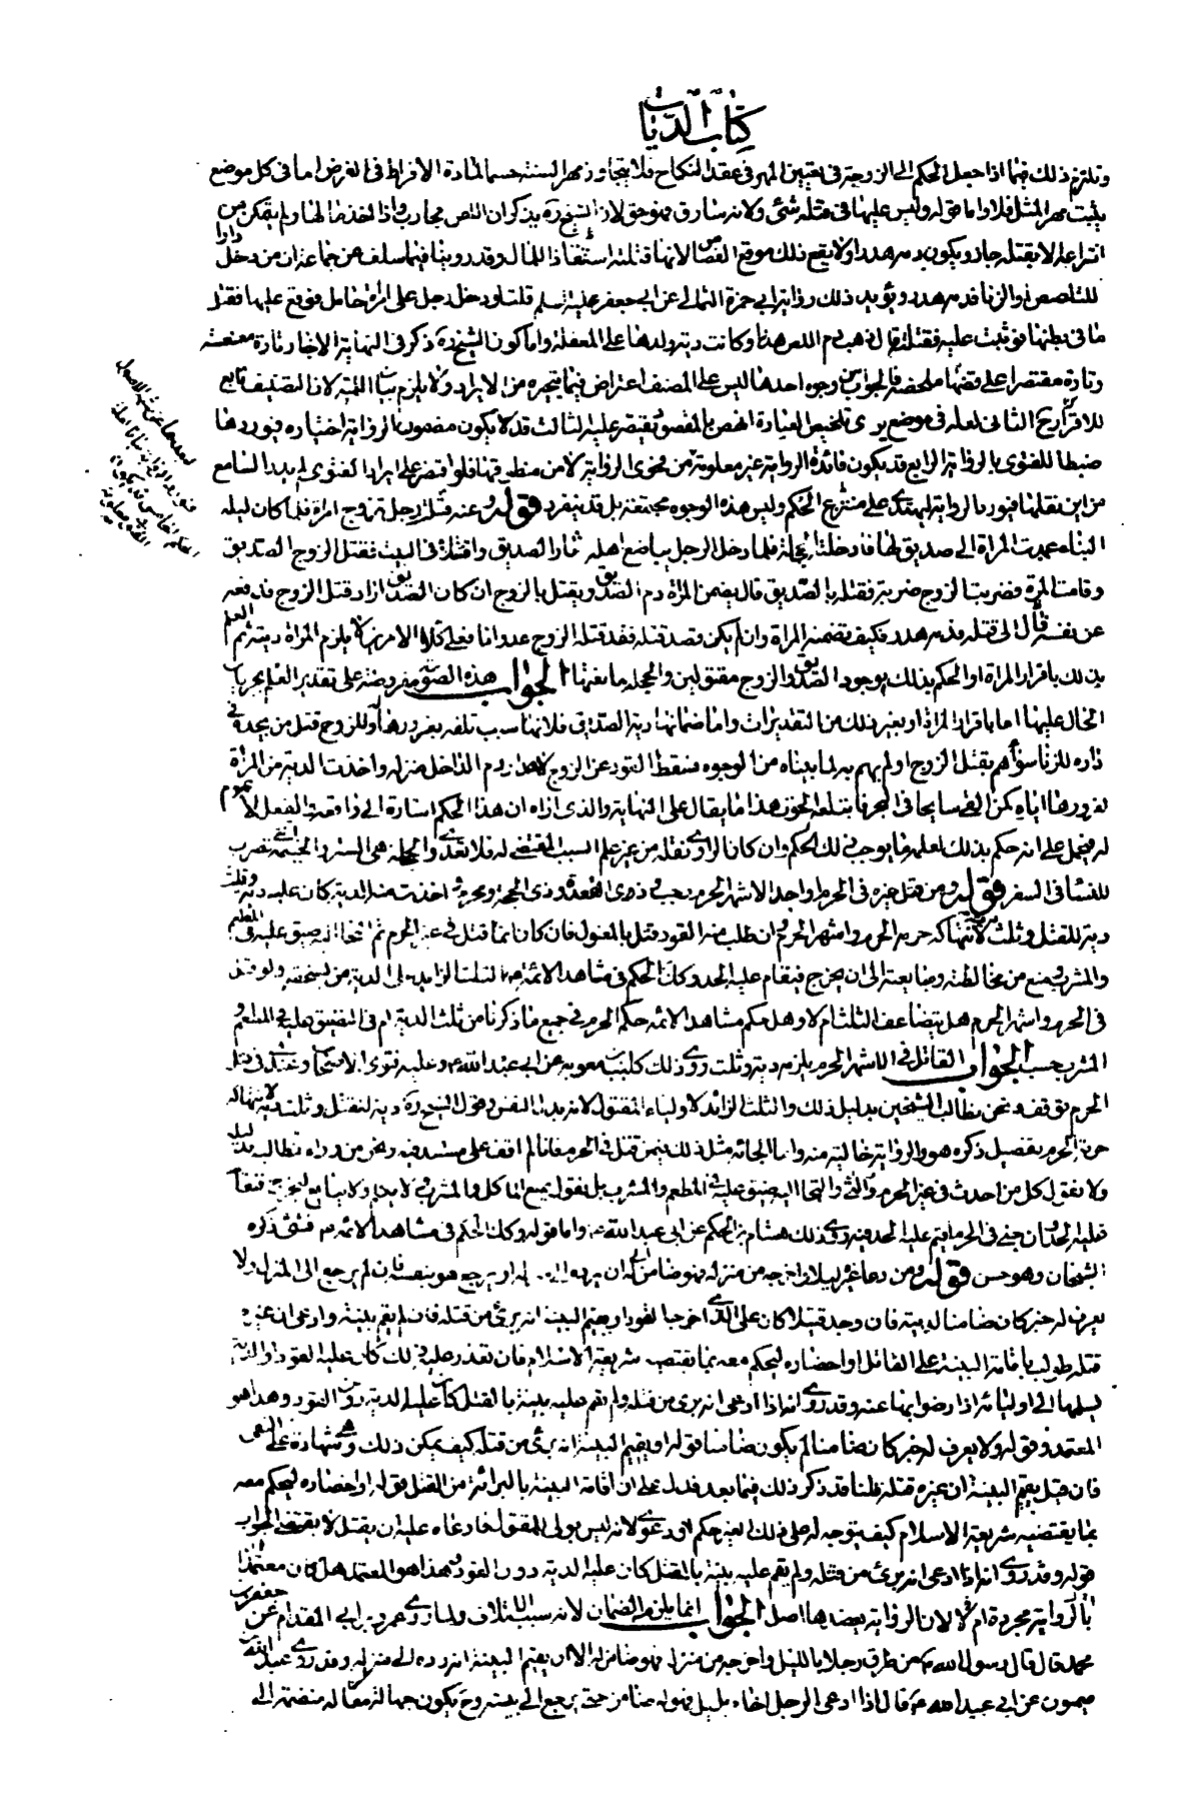 كتاب الديات
وتلتزم ذلك فيما اذا جعل الحكم الى الزوجة فى تعيين المهر فى عقد النكاح فلا يتجاوز مهر السنة حسما لمادة الافراط فى الفرض اما فى كل موضع
يثبت مهر المثل فلا واما قوله وليس عليها فى قتله شئ ولانه سارق فهو حق لان الشيخ ره يذكر ان اللص محارب واذا اخذ مالها ولم يتمكن من
انتزاعه الا بقتله جاز ويكون دمه هدرا ولا يقع ذلك موقع القصاص لانها قتلته استنقاذا للمال وقد روينا فيما سلف عن جماعة ان من دخل دارا
للتلصص او الزنا فدمه هدر ويؤيد ذلك رواية ابى حمزة الثمالى عن ابى جعفر عليه السلم قلت لو دخل رجل على امراة حامل فوقع عليها فقتل
ما فى بطنها فوثبت عليه فقتلته قال ذهب دم اللص هدرا وكانت دية ولدها على المعقلة واما كون الشيخ ره ذكر فى النهاية الاخبار تارة
وتارة مقتصرا على قصها ملخصه فالجواب من وجوه احدها ليس على المصنف اعتراض فيما يتخيره من الايراد ولا يلزم بيان اللمية لان التصنيف تابع
الثانى لعله فى موضع يرى تلخيص العبارة انهض بالمقصود فيقتصر عليه الثالث قد لا يكون مضمون الرواية اختياره فيوردها
ضبطا للفتوى بالرواية الرابع قد يكون فائدة الرواية غير معلومة من فحوى الرواية لا من منطوقها فلو اقتصر على ايراد الفتوى لم يدر السامع
من اين نقلها فيورد الرواية ليستدل على منتزع الحكم وليس هذه الوجوه مجتمعة بل قد ينفرد قوله وعنه قلت رجل تزوج امراة فلما كان ليلة
البناء عمدت المراة الى صديق لها فادخلته الحجلة فلما دخل الرجل يباضع اهله ثار الصديق واقتتلا فى البيت فقتل الزوج الصديق
وقامت المراة فضربت الزوج ضربة فقتلته بالصديق قال يضمن المراة دم الصديق ويقتل بالزوج ان كان الصديق اراد قتل الزوج فدفعه
عن نفسه الى قتله فدمه هدر فكيف تضمنه المراة وان لم يكن قصد قتله فقد قتله الزوج عدوانا فعلى كلا الامرين لا يلزم المراة ديته ثم العلم
بذلك باقرار المراة او الحكم بذلك بوجود الصديق والزوج مقتولين والحجلة ما معهما الجواب هذه الصورة مفروضة على تقدير العلم بجريان
الحال عليها اما باقرار المراة او بغير ذلك من التقديرات واما ضمانها دية الصديق فلانها سبب تلفه بغرورها وللزوج قتل من يجده فى
داره للزنا سواء هم بقتل الزوج او لم يهم به لما بيناه من الوجوه فسقط القود عن الزوج لاهدار دم الداخل منزله واخذت الدية من المراة
لغرورها اياه كمن القى سابحا فى البحر فابتلعه الحوت هذا ما يقال على النهاية والذى اراه ان هذا الحكم اشارة الى واقعة الفعل لا عموم
له فيحمل على انه حكم بذلك لعلمه بما يوجب ذلك الحكم وان كان الراوى نقله من غير علم السبب المقتضى له فلا يتعدى والحجلة هى الستر والخيمة التى تضرب
للنساء فى السفر قوله ومن قتل غيره فى الحرم او احد الاشهر الحرم رجب وذى القعدة وذى الحجة ومحرم اخذت منه الدية كان عليه دية وثلث
دية للقتل وثلث لانتهاكه حرمة الحرم واشهر الحرم وان طلب منه القود قتل بالمقتول فان كان انما قتل فى غير الحرم ثم التجأ اليه ضيق عليه فى المطعم
والمشرب ويمنع من مخالطته ومبايعته الى ان يخرج فيقام عليه الحد وكذا الحكم فى مشاهد الائمة هل الثلث الزايد على الدية من يستحقه ولو قتل
فى الحرم واشهر الحرم هل يتضاعف الثلث ام لا وهل حكم مشاهد الائمه حكم الحرم فى جميع ما ذكرنا من ثلث الدية ام فى التضييق عليه فى المطعم و
المشرب حسب الجواب القاتل فى الاشهر الحرم يلزمه دية وثلث روى ذلك كليب بن معوية عن ابى عبد الله ع وعليه فتوى الاصحاب وعندى فى قتل
الحرم توقف ونحن نطالب الشيخين بدليل ذلك والثلث الزائد لاولياء المقتول لانه بدل النفس وقول الشيخ ره دية للقتل وثلث دية لانتهاكه
حرمة الحرم تفصيل ذكره هو والرواية خالية منه واما الجانه مثل ذلك فيمن قتل فى الحرم فانا لم اقف على مستند فيه ونحن من وراء نطالبه بدليل
ولا نقول كل من احدث فى غير الحرم والتجأ اليه ضيق عليه فى المطعم والمشرب بل نقول يمنع الماكل والمشرب ولا يبايع ليخرج فيقام
عليه الحد وان جنى فى الحرم اقيم عليه الحد فيه روى ذلك هشام بن الحكم عن ابى عبد الله ع واما قوله وكذا الحكم فى مشاهد الائمه ع فشئ ذكره
الشيخان وهو حسن قوله ومن دعا غيره ليلا واخرجه من منزله فهو ضامن له الى ان يرده اليه او يرجع هو بنفسه فان لم يرجع الى المنزل ولا
يعرف له خبر كان ضامنا لديته فان وجد قتيلا كان على الذى اخرجه القود او يقيم البينة انه برئ من قتله فان لم يقم بينة وادعى ان غيره
قتله طولب باقامة البينة على القاتل او احضاره ليحكم معه بما يقتضيه شريعة الاسلام فان تعذر عليه ذلك كان عليه القود او الدية
يسلمها الى اوليائه اذا رضوا بها عنه وقد روى انه اذا ادعى انه برئ من قتله ولم يقم عليه بينة بالقتل كان عليه الدية دون القود وهذا هو
المعتمد وقوله ولا يعرف له خبر كان ضامنا لم يكون ضامنا قوله او يقيم البينة انه برئ من قتله كيف يمكن ذلك وهى شهادة على النفى
فان قيل يقيم البينة ان غيره قتله قلنا قد ذكر ذلك فيما بعد فدل على ان اقامة البينة بالبرائة من القتل قوله او احضاره ليحكم معه
بما يقتضيه شريعة الاسلام كيف يتوجه له على ذلك الغير حكم او دعوى لانه ليس بولى للمقتول فادعاه عليه ان يقتل لا يقتضى الجواب
قوله وقد روى انه اذا ادعى انه برئ من قتله ولم يقم عليه بينة بالقتل كان عليه الدية دون القود وهذا هو المعتمد هل كان معتمدا
بالرواية مجردة ام لا لان الرواية يعضدها اصل الجواب انما يلزمه الضمان لانه سبب الاتلاف ولما روى عمرو بن ابى المقدام عن جعفر بن
محمد قال قال رسول الله ص من طرق رجلا بالليل واخرجه من منزله فهو ضامن له الا ان يقيم البينة انه رده الى منزله وقد روى عبد الله بن
ميمون عن ابى عبد الله ع قال اذا دعى الرجل اخاه بليل فهو له ضامن حتى يرجع الى بيته وح يكون جهالة مقاله منضمة الى